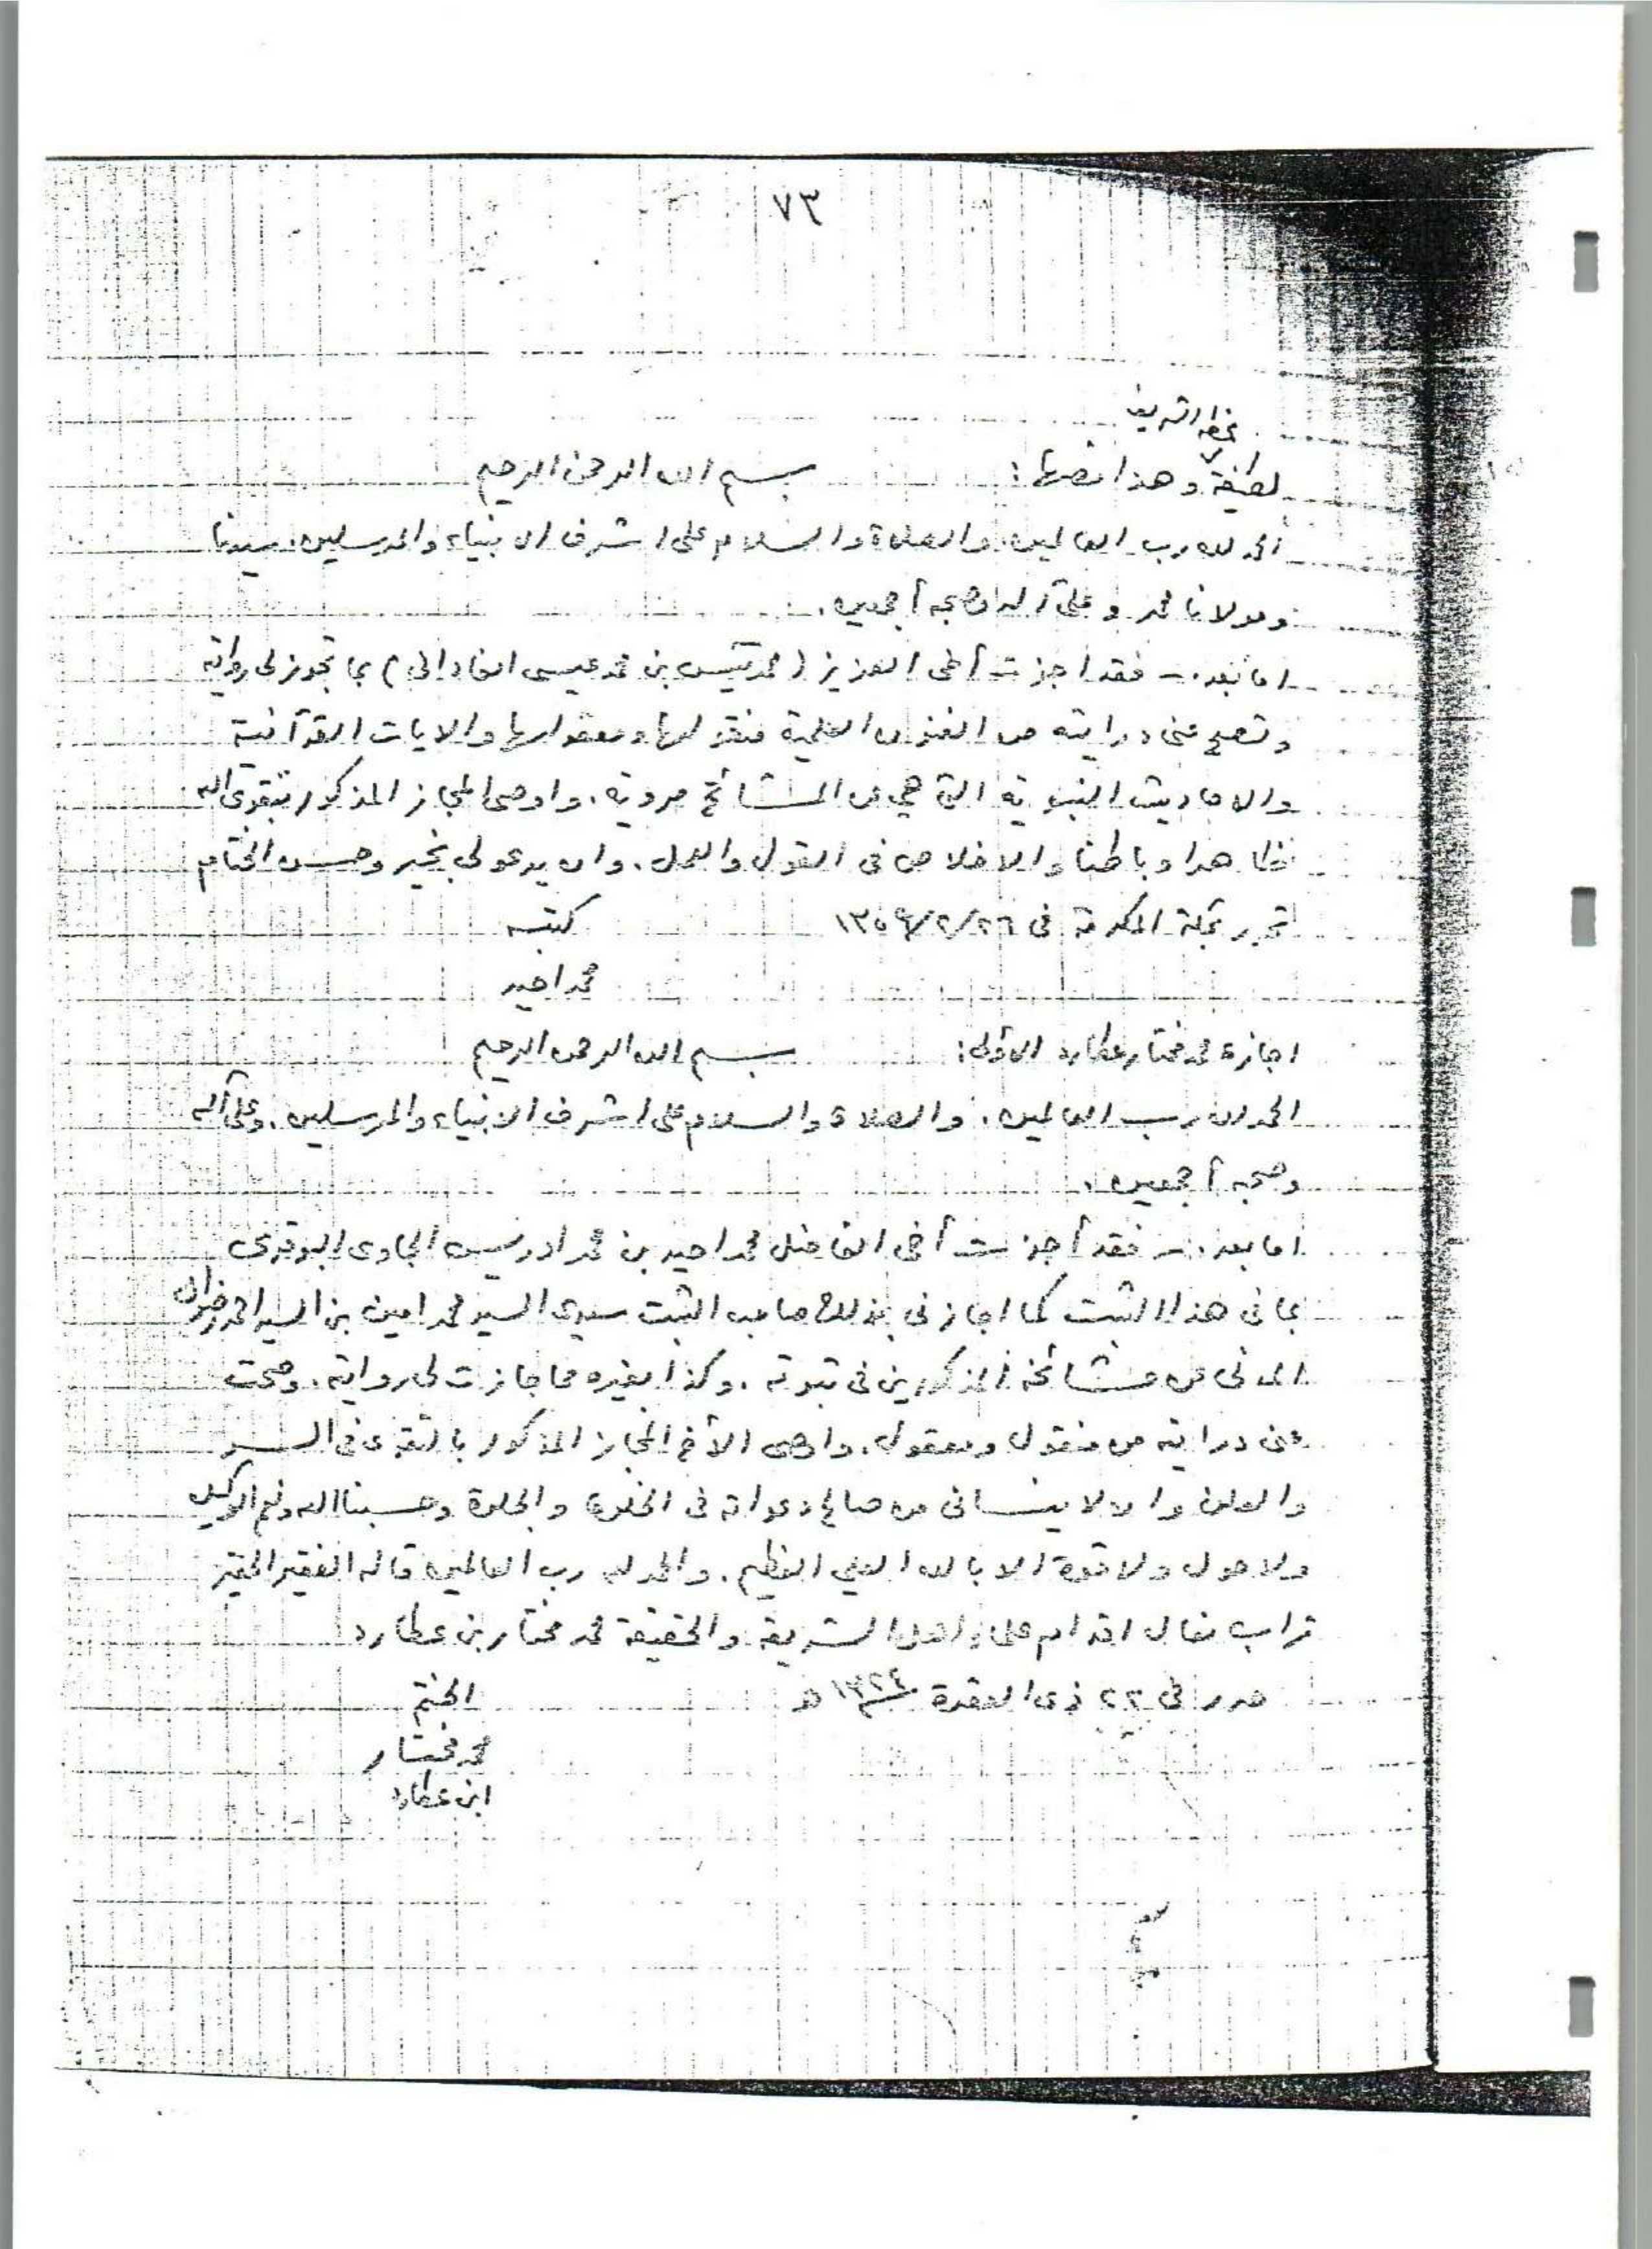 ٧٣
بخطه الشريف
لطيفة وهذا نصها: بسم الله الرحمن الرحيم
الحمد لله رب العالمين، والصلاة والسلام على اشرف الانبياء والمرسلين، سيدنا
ومولانا محمد وعلى آله وصحبه أجمعين.
اما بعد - فقد اجزت أخى العزيز (محمد يس بن محمد عيسى الفادانى) بما تجوز لى روايته
وتصح عنى درايته من الفنون العلمية منقولها ومعقولها والايات القرآنية
والاحاديث النبوية التى هى عن المشائخ مروية، واوصى المجاز المذكور بتقوى الله
ظاهرا وباطنا والاخلاص فى القول والعمل، وان يدعو لى بخير وحسن الختام
تحرير بمكة المكرمة فى ١٣٥٩/٢/٢٦ كتبه
محمد احيد
اجازة محمد مختار عطارد الأولى: بسم الله الرحمن الرحيم
الحمد لله رب العالمين، والصلاة والسلام على اشرف الانبياء والمرسلين، وعلى آله
وصحبه أجمعين.
اما بعد - فقد أجزت أخى الفاضل محمد احيد بن محمد ادريس الجاوى البوقرى
بما فى هذا الثبت كما اجازنى بذلك صاحب الثبت سيدى السيد محمد امين بن السيد احمد رضوان
المدنى عن مشائخه المذكورين فى ثبوته، وكذا بغيره مما جازت لى روايته، وصحت
عنى درايته من منقول ومعقول، واوصى الأخ المجاز المذكور بالتقوى فى السر
والعلن وان لا ينسانى من صالح دعواته فى الخلوة والجلوة وحسبنا الله ونعم الوكيل
ولا حول ولا قوة الا بالله العلي العظيم، والحمد لله رب العالمين قاله الفقير الحقير
تراب نعال اقدام علماء اهل الشريعة والحقيقة محمد مختار بن عطارد
حرر فى ٢٢ ذى القعدة ١٣٢٤ ه الختم
محمد مختار
ابن عطارد